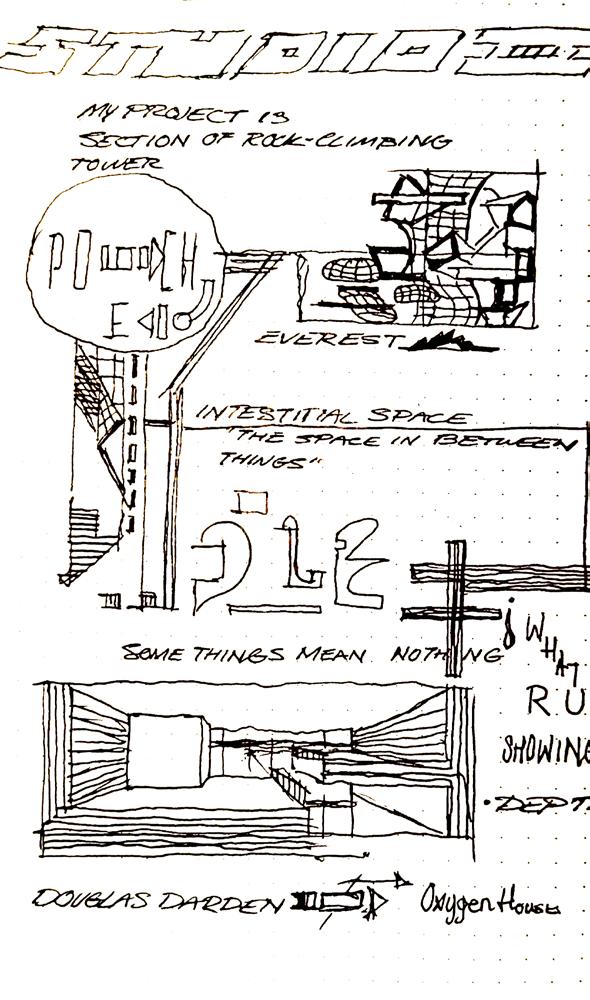 STUDIO
MY PROJECT IS
SECTION OF ROCK-CLIMBING
TOWER
EVEREST
INTESTITIAL SPACE
"THE SPACE IN BETWEEN
THINGS"
SOME THINGS MEAN NOTHING
WHAT
RU
SHOWING
DEPT
DOUGLAS DARDEN
Oxygen House